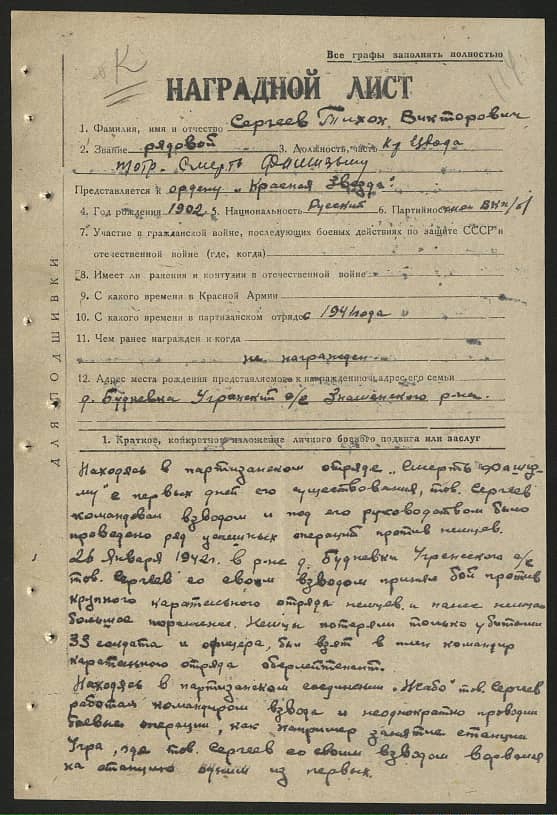 К
Все графы заполнять полностью
НАГРАДНОЙ ЛИСТ
1. Фамилия, имя и отчество Сергеев Тихон Викторович
2. Звание рядовой 3. Должность, часть К-р взвода
п/отр. Смерть Фашизму
Представляется к ордену „Красная Звезда"
4. Год рождения 1902 5. Национальность Русский 6. Партийность член ВКП/б/
7. Участие в гражданской войне, последующих боевых действиях по защите СССР и
отечественной войне (где, когда)
8. Имеет ли ранения и контузии в отечественной войне
9. С какого времени в Красной Армии
10. С какого времени в партизанском отряде с 1941 года
11. Чем ранее награжден и когда
не награжден
12. Адрес места рождения представляемого к награждению и адрес его семьи
д. Будневка Угранский с/с Знаменского р-на.
1. Краткое, конкретное изложение личного боевого подвига или заслуг
Находясь в партизанском отряде „Смерть Фашиз-
му" с первых дней его существования, тов. Сергеев
командовал взводом и под его руководством было
проведено ряд успешных операций против немцев.
26 января 1942г. в р-не д. Будневки Угранского с/с
тов. Сергеев со своим взводом принял бой против
крупного карательного отряда немцев и нанес немцам
большое поражение. Немцы потеряли только убитыми
33 солдата и офицера, был взят в плен командир
карательного отряда оберлейтенант.
Находясь в партизанском соединении „Жабо" тов. Сергеев
работал командиром взвода и неоднократно проводил
боевые операции, как например занятие станции
Угра, где тов. Сергеев со своим взводом ворвался
на станцию одним из первых.
ДЛЯ ПОДШИВКИ